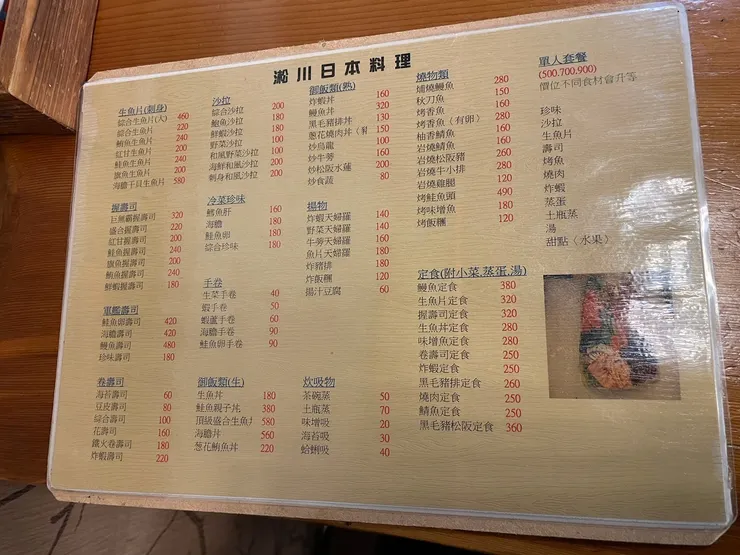 淞川日本料理
生魚片(刺身)
綜合生魚片(大) 460
綜合生魚片 220
鮪魚生魚片 240
紅甘生魚片 200
鮭魚生魚片 240
旗魚生魚片 200
海膽干貝生魚片 580
握壽司
巨無霸握壽司 320
盛合握壽司 220
紅甘握壽司 200
鮭魚握壽司 240
旗魚握壽司 200
鮪魚握壽司 240
鮮蝦握壽司 180
軍艦壽司
鮭魚卵壽司 420
海膽壽司 420
鰻魚壽司 480
珍味壽司 180
卷壽司
海苔壽司 60
豆皮壽司 80
綜合壽司 100
花壽司 160
鐵火卷壽司 180
炸蝦壽司 220
沙拉
綜合沙拉 200
鮑魚沙拉 180
鮮蝦沙拉 180
野菜沙拉 100
和風野菜沙拉 100
海鮮和風沙拉 200
刺身和風沙拉 200
冷菜珍味
鱈魚肝 160
海膽 180
鮭魚卵 180
綜合珍味 180
手卷
生菜手卷 40
蝦手卷 50
蝦蘆手卷 60
海膽手卷 90
鮭魚卵手卷 90
御飯類(生)
生魚丼 280
鮭魚親子丼 380
頂級盛合生魚丼 580
海膽丼 560
葱花鮪魚丼 220
御飯類(熟)
炸蝦丼 160
鰻魚丼 320
黑毛豬排丼 130
葱花燒肉丼 150
炒烏龍 100
炒牛蒡 160
炒松阪水蓮 200
炒食蔬 80
揚物
炸蝦天婦羅 140
野菜天婦羅 140
牛蒡天婦羅 140
魚片天婦羅 180
炸豬排 180
炸飯糰 120
揚汁豆腐 60
炊吸物
茶碗蒸 50
土瓶蒸 70
味增吸 20
海苔吸 30
蛤蜊吸 40
燒物類
爐燒鰻魚 280
秋刀魚 150
烤香魚 150
烤香魚（有卵） 180
柚香鯖魚 160
岩燒鯖魚 160
岩燒松阪豬 260
岩燒牛小排 280
岩燒雞腿 120
烤鮭魚頭 490
烤味增魚 180
烤飯糰 120
定食(附小菜.蒸蛋.湯)
鰻魚定食 380
生魚片定食 320
握壽司定食 320
生魚丼定食 280
味增魚定食 280
卷壽司定食 250
炸蝦定食 250
黑毛豬排定食 260
燒肉定食 250
鯖魚定食 250
黑毛豬松阪定食 360
單人套餐
(500.700.900)
價位不同食材會升等
珍味
沙拉
生魚片
壽司
烤魚
燒肉
炸蝦
蒸蛋
土瓶蒸
湯
甜點（水果）